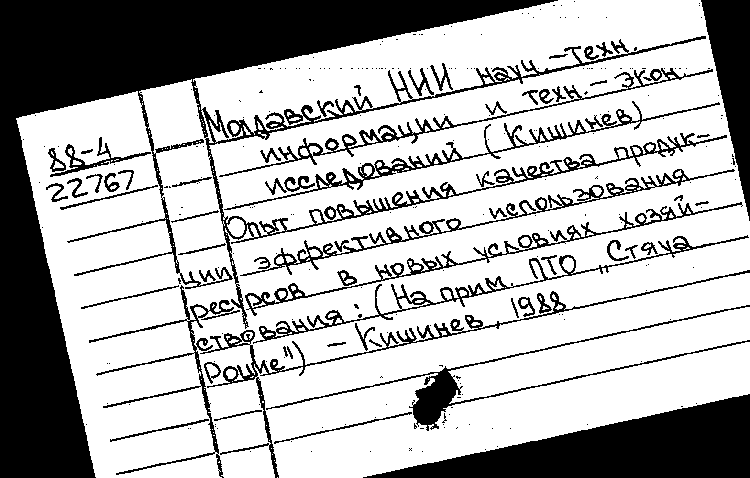 88-4
22767
Молдавский НИИ науч.-техн.
информации и техн.-экон.
исследований (Кишинев)
Опыт повышения качества продук-
ции, эффективного использования
ресурсов в новых условиях хозяй-
ствования: (На прим. ПТО „Стяуа
Рошие") – Кишинев, 1988